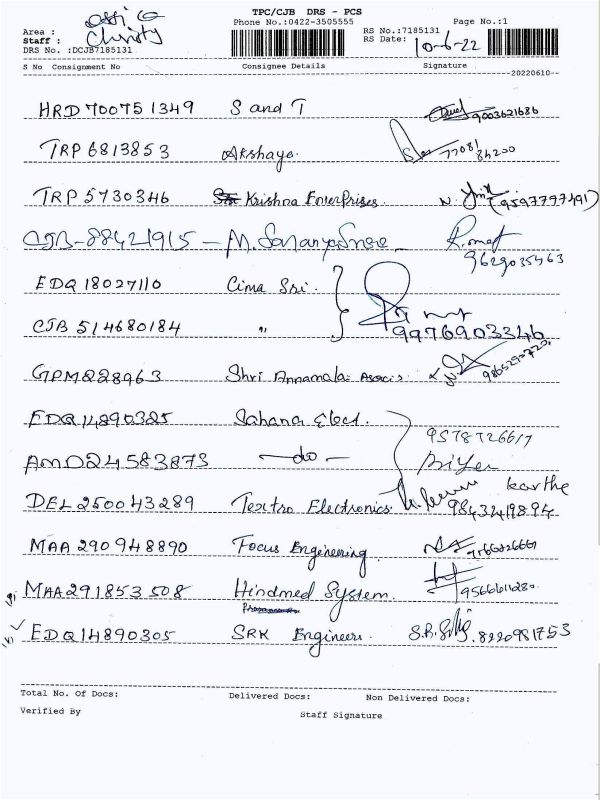 TPC/CJB DRS - PCS
Phone No.:0422-3505555 Page No.:1
Area :
Staff : Christy
DRS No. :DCJB7185131
RS No.:7185131
RS Date: 10-6-22
S No Consignment No Consignee Details Signature
20220610
HRD 700751349 S and T 9003621686
TRP 6813853 Akshaya. 77081 84200
TRP 5730346 Krishna Enerprises. N. (9597777491)
CJB-88421915 - M. Saranya 9629035463
EDQ 18027110 Cima Sri.
CJB 514680184 " 9976903346
GPMQ28963 Shri Annamalai Assocs. 9865290720
EDQ14890325 Sahana Elect. 9578726617
AMD24583873 - do - Priya
DEL 250043289 Textro Electronics. karthe 9843419894
MAA 290948890 Focus Engineering
MAA291853508 Hindmed System. 9566611280
EDQ14890305 SRK Engineers. 8220981753
Total No. Of Docs: Delivered Docs: Non Delivered Docs:
Verified By Staff Signature